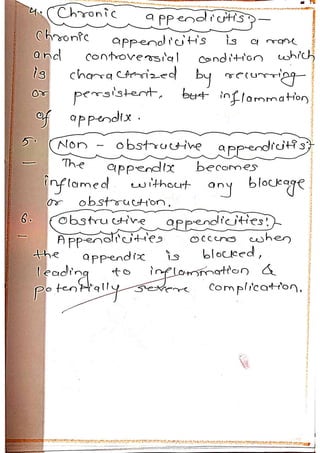 4. Chronic appendicitis:-
Chronic appendicitis is a rare
and controversial condition which
is characterized by recurring
or persistent, but inflammation
of appendix.
5. Non - obstructive appendicitis:-
The appendix becomes
inflamed without any blockage
or obstruction.
6. Obstructive appendicities:-
Appendicities occurs when
the appendix is blocked,
leading to inflammation &
potentially severe complication.